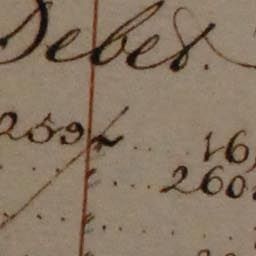 Debes.
259 16
260